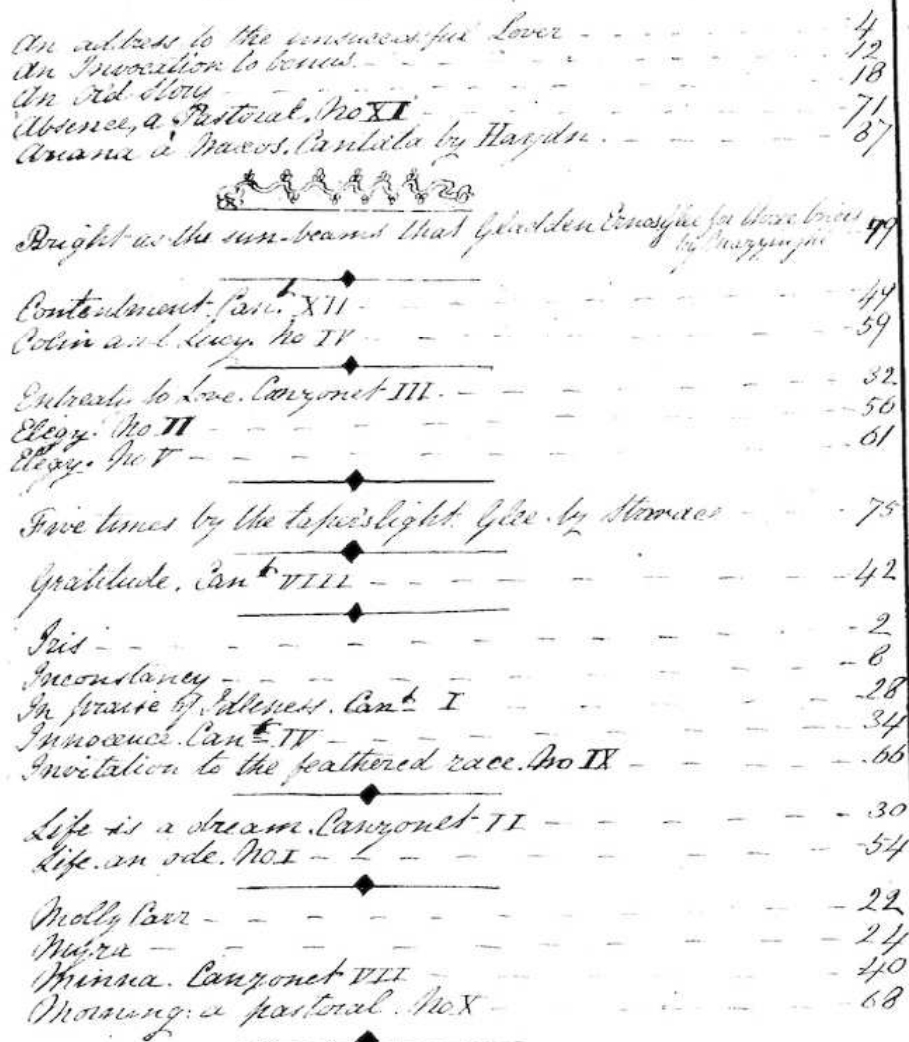 An address to the unsuccessful Lover 4
An Invocation to Venus 12
An Old Story 18
Absence, a Pastoral. No XI 71
Ariana à Naxos. Cantata by Haydn. 87
Bright as the sun-beams that Gladden Glee for three voices 79
by Mazzinghi
Contentment. Cant XII 49
Colin and Lucy. No IV 59
Entreaty to Love. Canzonet III. 32
Elegy. No II 56
Elegy. No V 61
Five times by the taper's light. Glee by Storace 75
Gratitude. Cant VIII 42
Iris 2
Inconstancy 8
In praise of Idleness. Cant I 28
Innocence. Cant IV 34
Invitation to the feathered race. No IX 66
Life is a dream. Canzonet II 30
Life. an ode. No I 54
Molly Carr 22
Myra 24
Minna. Canzonet VII 40
Morning: a pastoral. No X 68